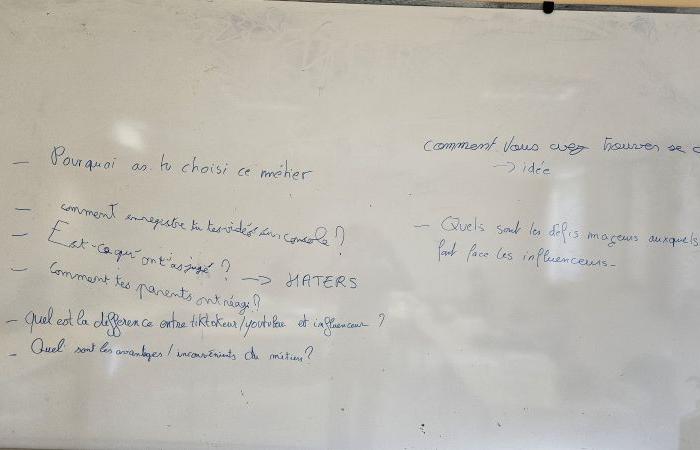 – Pourquoi as tu choisi ce métier
– comment enregistre tu tes vidés sur console ?
– Est-ce qu'ont t'as jugé ? → HATERS
– Comment tes parents ont réagi ?
– Quel est la différence entre tiktokeur/youtubeur et influenceur ?
– Quel sont les avantages / inconvénients du métier ?
comment vous avez trouver se
→ idée
– Quels sont les défis majeurs auxquels
font face les influenceurs –